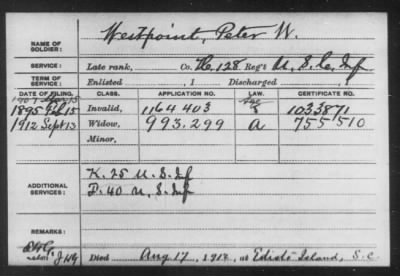 NAME OF SOLDIER: Westpoint, Peter W.
SERVICE: Late rank, Co. H. 128 Reg't U. S. C. Inf
TERM OF SERVICE: Enlisted , 1 Discharged , 1
DATE OF FILING. CLASS. APPLICATION NO. LAW. CERTIFICATE NO.
1907 Mar 15
1895 Feb 15 Invalid, 1164 403 1033871
1912 Sept 13 Widow, 993.299 a 755510
Minor,
ADDITIONAL SERVICES: K. 25 U. S. Inf
D. 40 U. S. Inf
REMARKS:
Died Aug 17, 1912, at Edisto Island, S. C.